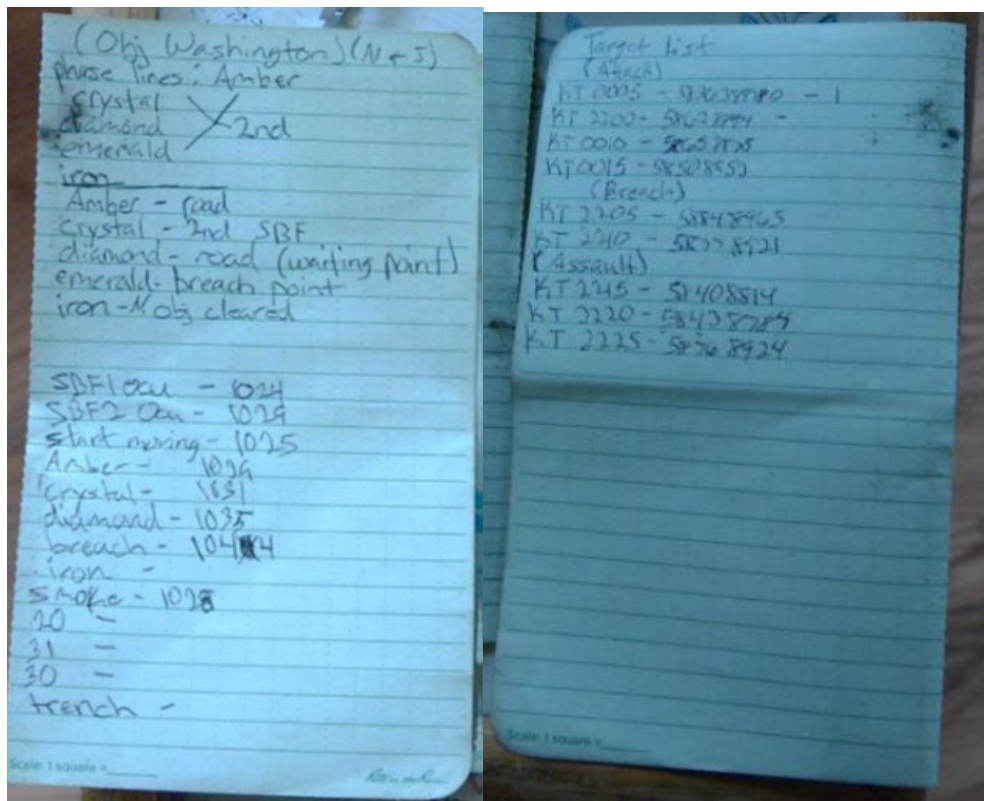 (Obj Washington) (N + S)
phase lines: Amber
crystal
diamond 2nd
emerald
iron
Amber - road
crystal - 2nd SBF
diamond - road (waiting point)
emerald - breach point
iron - N obj cleared
SBF1 - 1024
SBF2 - 1029
start moving - 1025
Amber - 1029
crystal - 1031
diamond - 1035
breach -
iron -
smoke - 1028
20 -
31 -
30 -
trench -
Scale: 1 square =
Target list
(Attack)
KT 0005 - - 1
KT 2200 - -
KT 0010 -
KT 0015 -
(Breach)
KT 2205 - 58848965
KT 2210 -
(Assault)
KT 2215 -
KT 2220 -
KT 2225 -
Scale: 1 square =